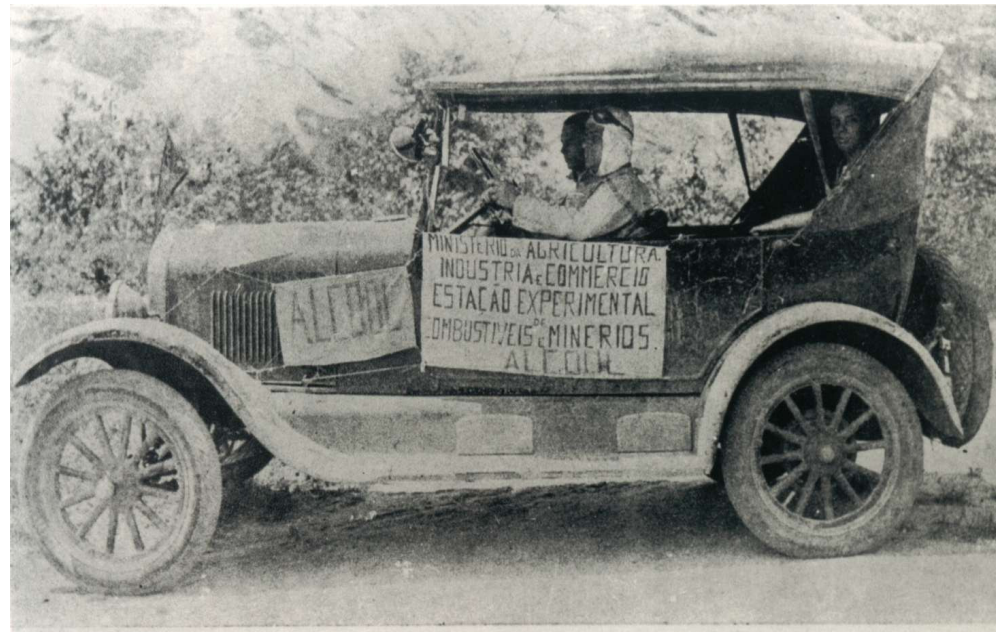 ALCOOL
MINISTERIO DA AGRICULTURA.
INDUSTRIA E COMMERCIO
ESTAÇÃO EXPERIMENTAL
DE
COMBUSTIVEIS E MINERIOS.
ALCOOL